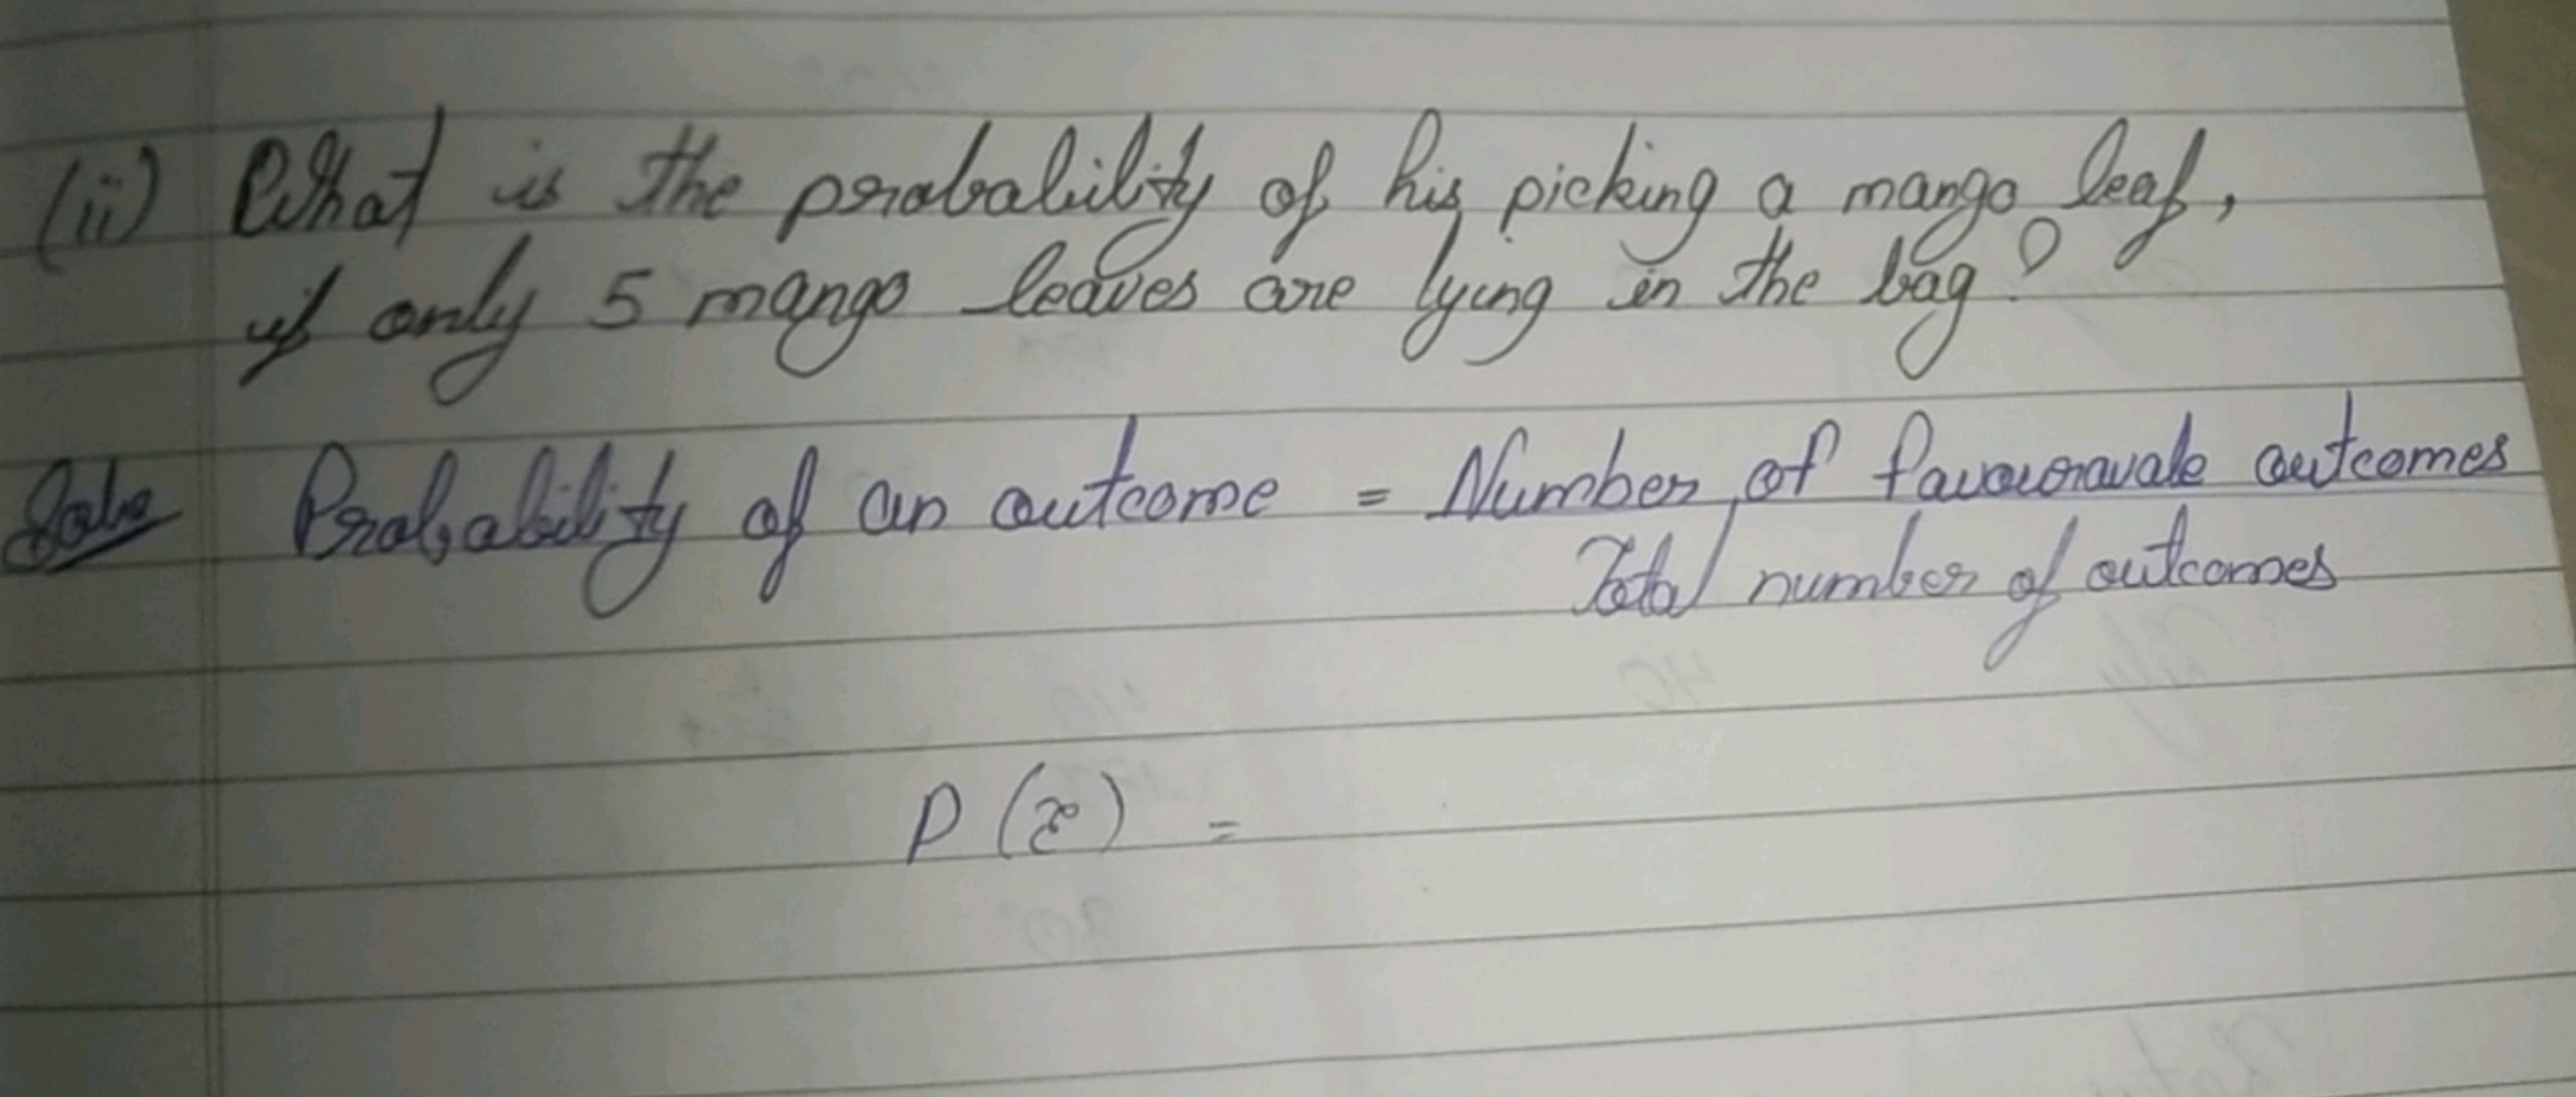 (ii) What is the probability of his picking a mango leaf,
if only 5 mango leaves are lying in the bag?
Solve Probability of an outcome = Number of favouravale outcomes
Total number of outcomes
P(E) =